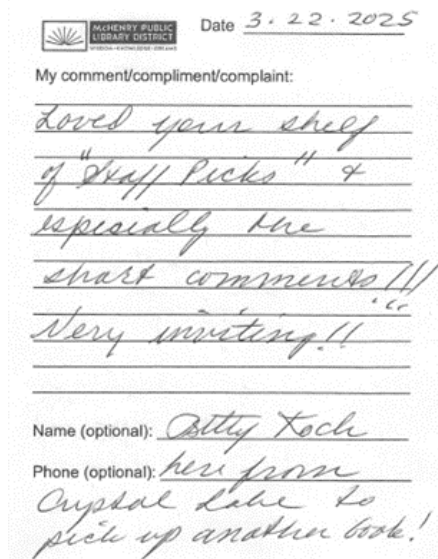 McHENRY PUBLIC
LIBRARY DISTRICT
WISDOM • KNOWLEDGE • DREAMS
Date 3.22.2025
My comment/compliment/complaint:
Loved your shelf
of "Staff Picks" &
especially the
short comments!!!
Very inviting!!
Name (optional): Betty Koch
Phone (optional): here from
Crystal Lake to
pick up another book!